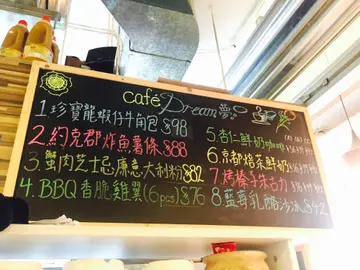 café Dream 夢
1 珍寶龍蝦仔牛角包 $98
2. 約克郡炸魚薯條 $88
3. 蟹肉芝士忌廉意大利粉 $82
4. BBQ香脆雞翼 (6pcs) $76
5. 杏仁鮮奶咖啡
6. 京都焙茶鮮奶
7. 烤榛子朱古力
8. 藍莓乳酪沙冰 $42